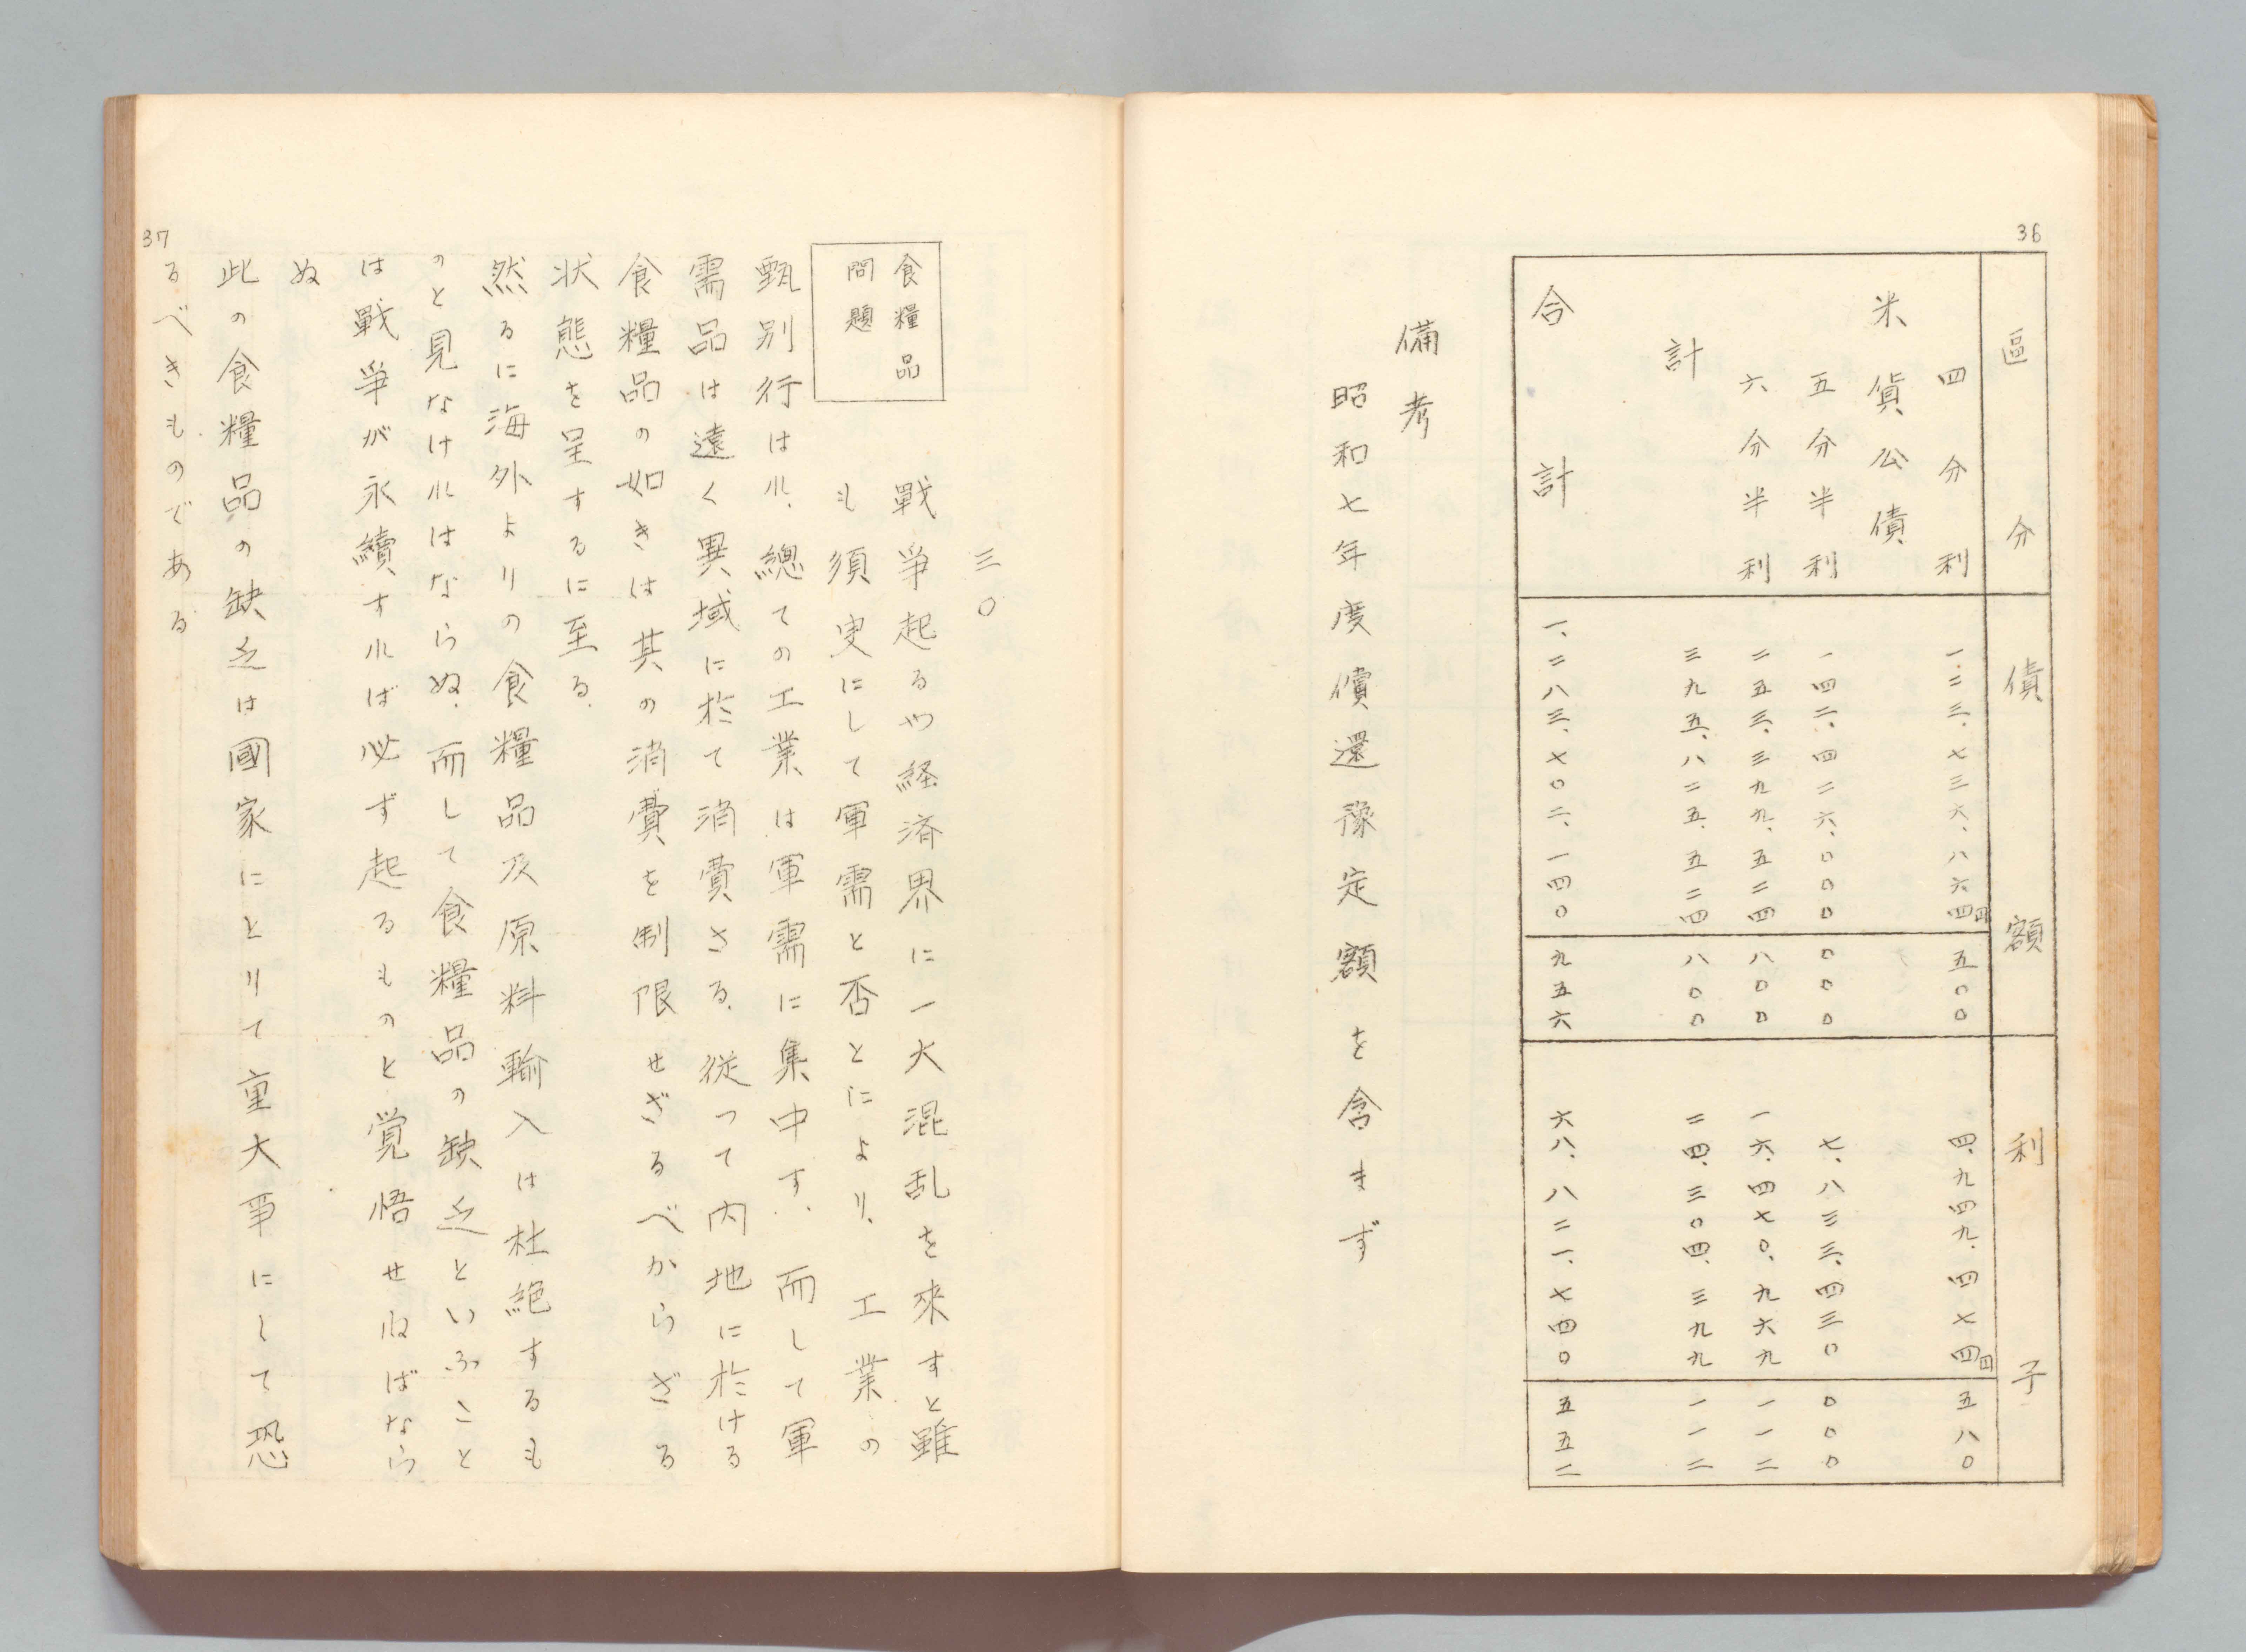 36
區分 債額 利子
四分利 一二三、七三六、八六四円 五〇〇 四、九四九、四七四円 五八〇
米貨公債
五分半利 一四二、四二六、〇〇〇 〇〇〇 七、八三三、四三〇 〇〇〇
六分半利 二五三、三九九、五二四 八〇〇 一六、四七〇、九六九 一一二
計 三九五、八二五、五二四 八〇〇 二四、三〇四、三九九 一一二
合計 一、二八三、七〇二、一四〇 九五六 六八、八二一、七四〇 五五二
備考
昭和七年度償還豫定額を含まず
三〇
食糧品
問題
戰爭起るや経済界に一大混乱を來すと雖
も須叟にして軍需と否とにより、工業の
甄別行はれ、總ての工業は軍需に集中す、而して軍
需品は遠く異域に於て消費さる、従って内地に於ける
食糧品の如きは其の消費を制限せざるべからざる
状態を呈するに至る、
然るに海外よりの食糧品及原料輸入は杜絶するも
のと見なければならぬ、而して食糧品の缺乏といふこと
は戰爭が永續すれば必ず起るものと覚悟せねばなら
ぬ
此の食糧品の缺乏は國家にとりて重大事にして恐
るべきものである
37